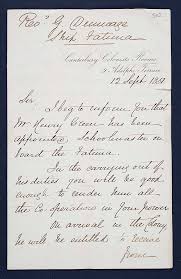 Revd. G.
Ship Fatima
Canterbury Colonists Rooms
Adelphi Terrace
12 Sept 1851
Sir
I beg to inform you that
Mr Henry Cam has been
appointed Schoolmaster on
board the Fatima.
In the carrying out of
his duties you will be good
enough to render him all
the Co-operation in your power
on arrival in the Colony
he will be entitled to receive
from